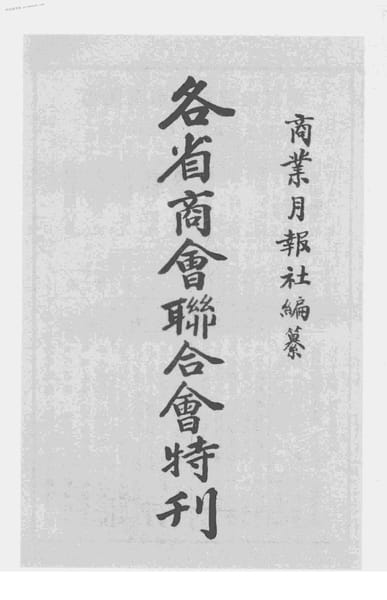 商業月報社編纂
各省商會聯合會特刊